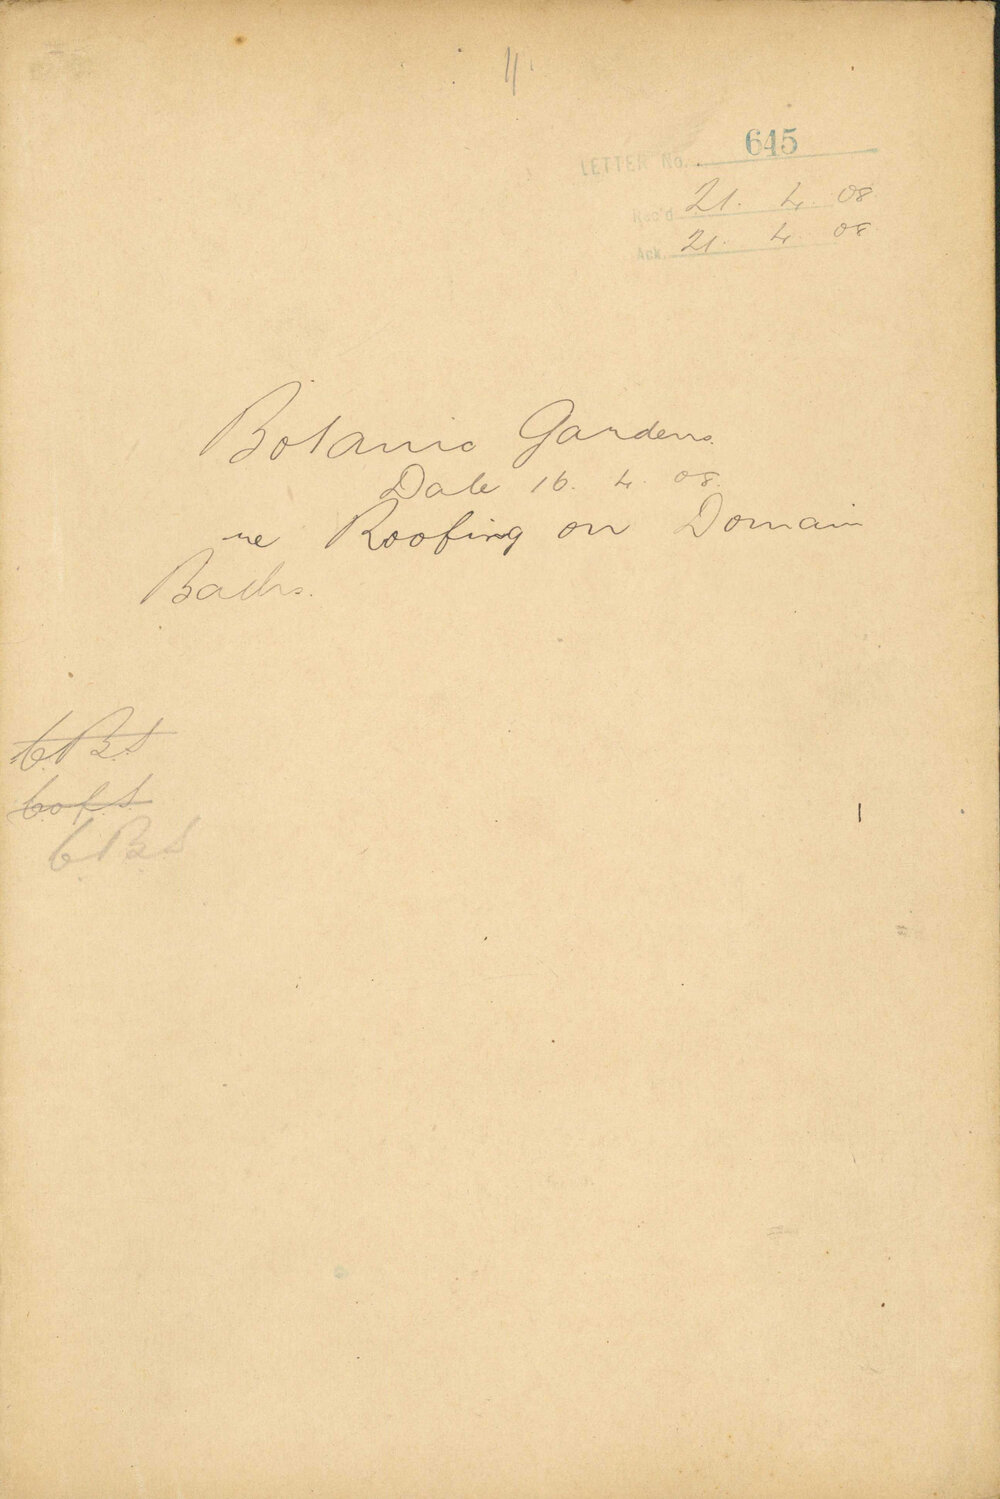 11
LETTER No. 645
Rec'd 21. 4. 08.
Ack. 21. 4. 08.
Botanic Gardens.
Date 16. 4. 08.
re Roofing on Domain
Baths.
C.B.S
C of S
C.B.S